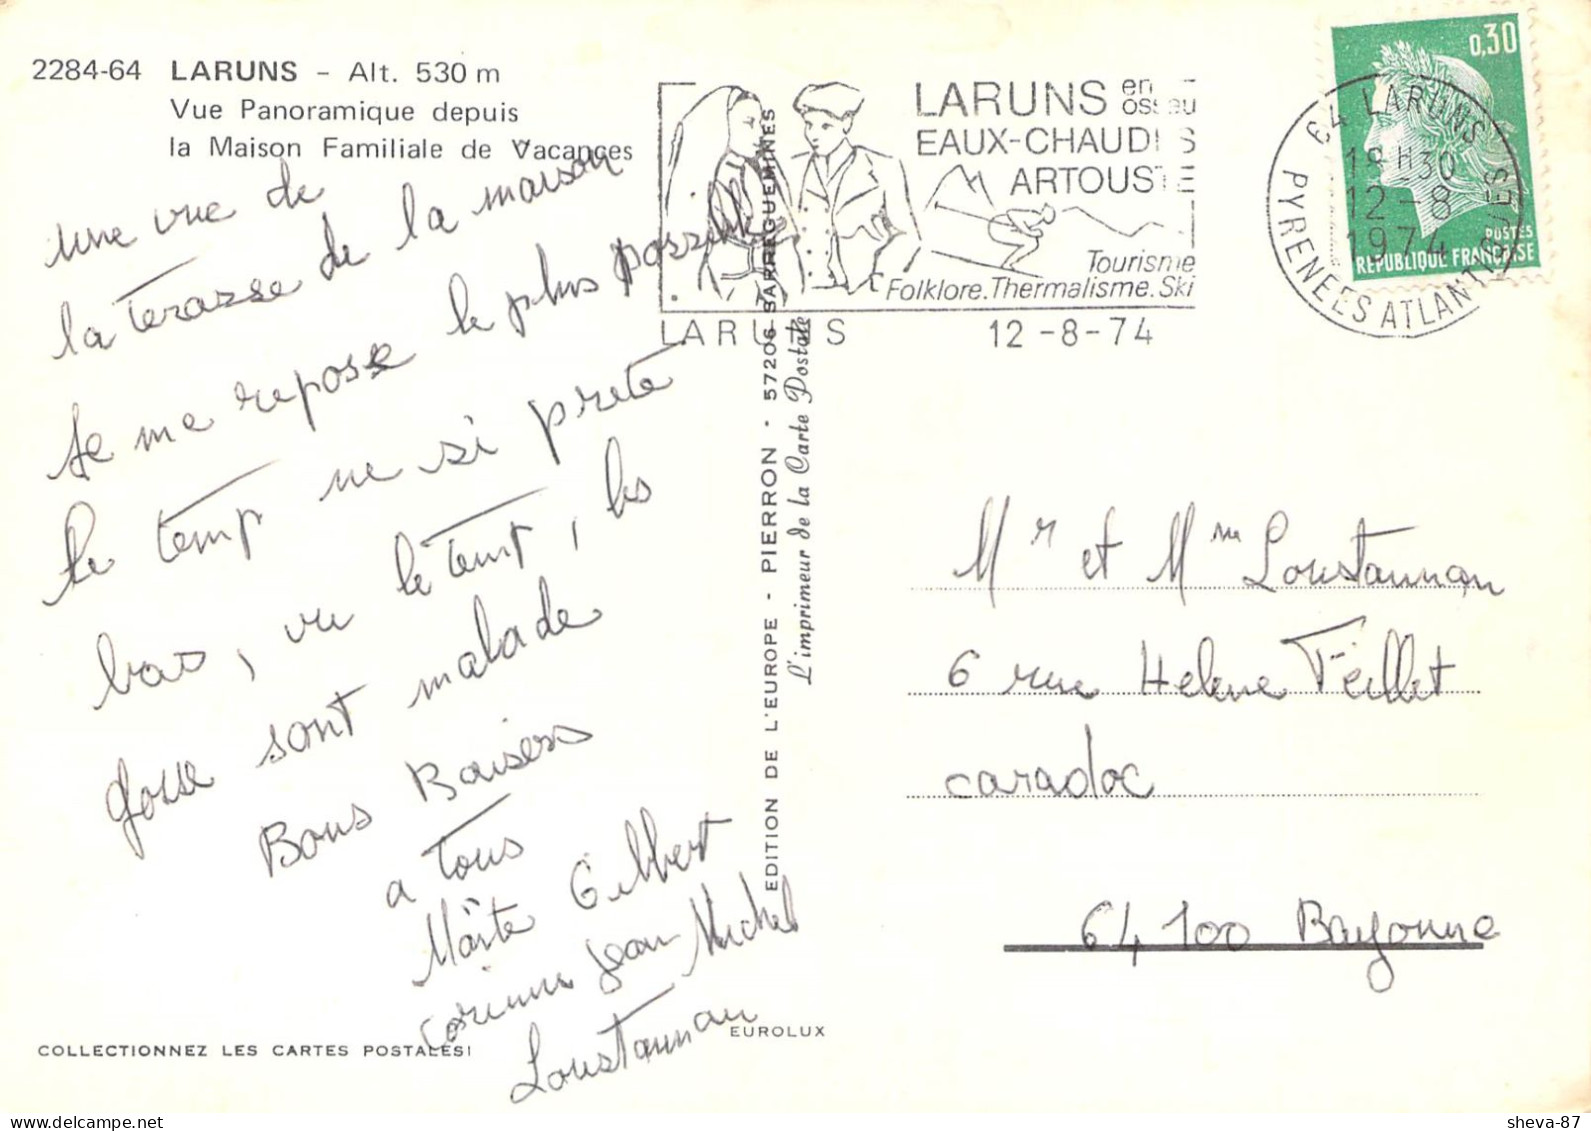 2284-64 LARUNS - Alt. 530 m
Vue Panoramique depuis
la Maison Familiale de Vacances
une vue de
la terasse de la maison
Je me repose le plus possible
le temp ne si prete
bas, vu le temp, les
gosse sont malade
Bons Baisers
a tous
Maïte Gilbert
corinne Jean Michel
Loustaunau
COLLECTIONNEZ LES CARTES POSTALES!
EUROLUX
EDITION DE L'EUROPE - PIERRON - 57206 SARREGUEMINES
L'imprimeur de la Carte Postale
LARUNS en
ossau
EAUX-CHAUDES
ARTOUSTE
Tourisme
Folklore.Thermalisme.Ski
LARUNS 12-8-74
64 LARUNS
18H30
12-8
1974
PYRENEES ATLANTIQUES
0,30
POSTES
REPUBLIQUE FRANÇAISE
Mr et Mme Loustaunau
6 rue Helene Feillet
caradoc
64 100 Bayonne
sheva-87